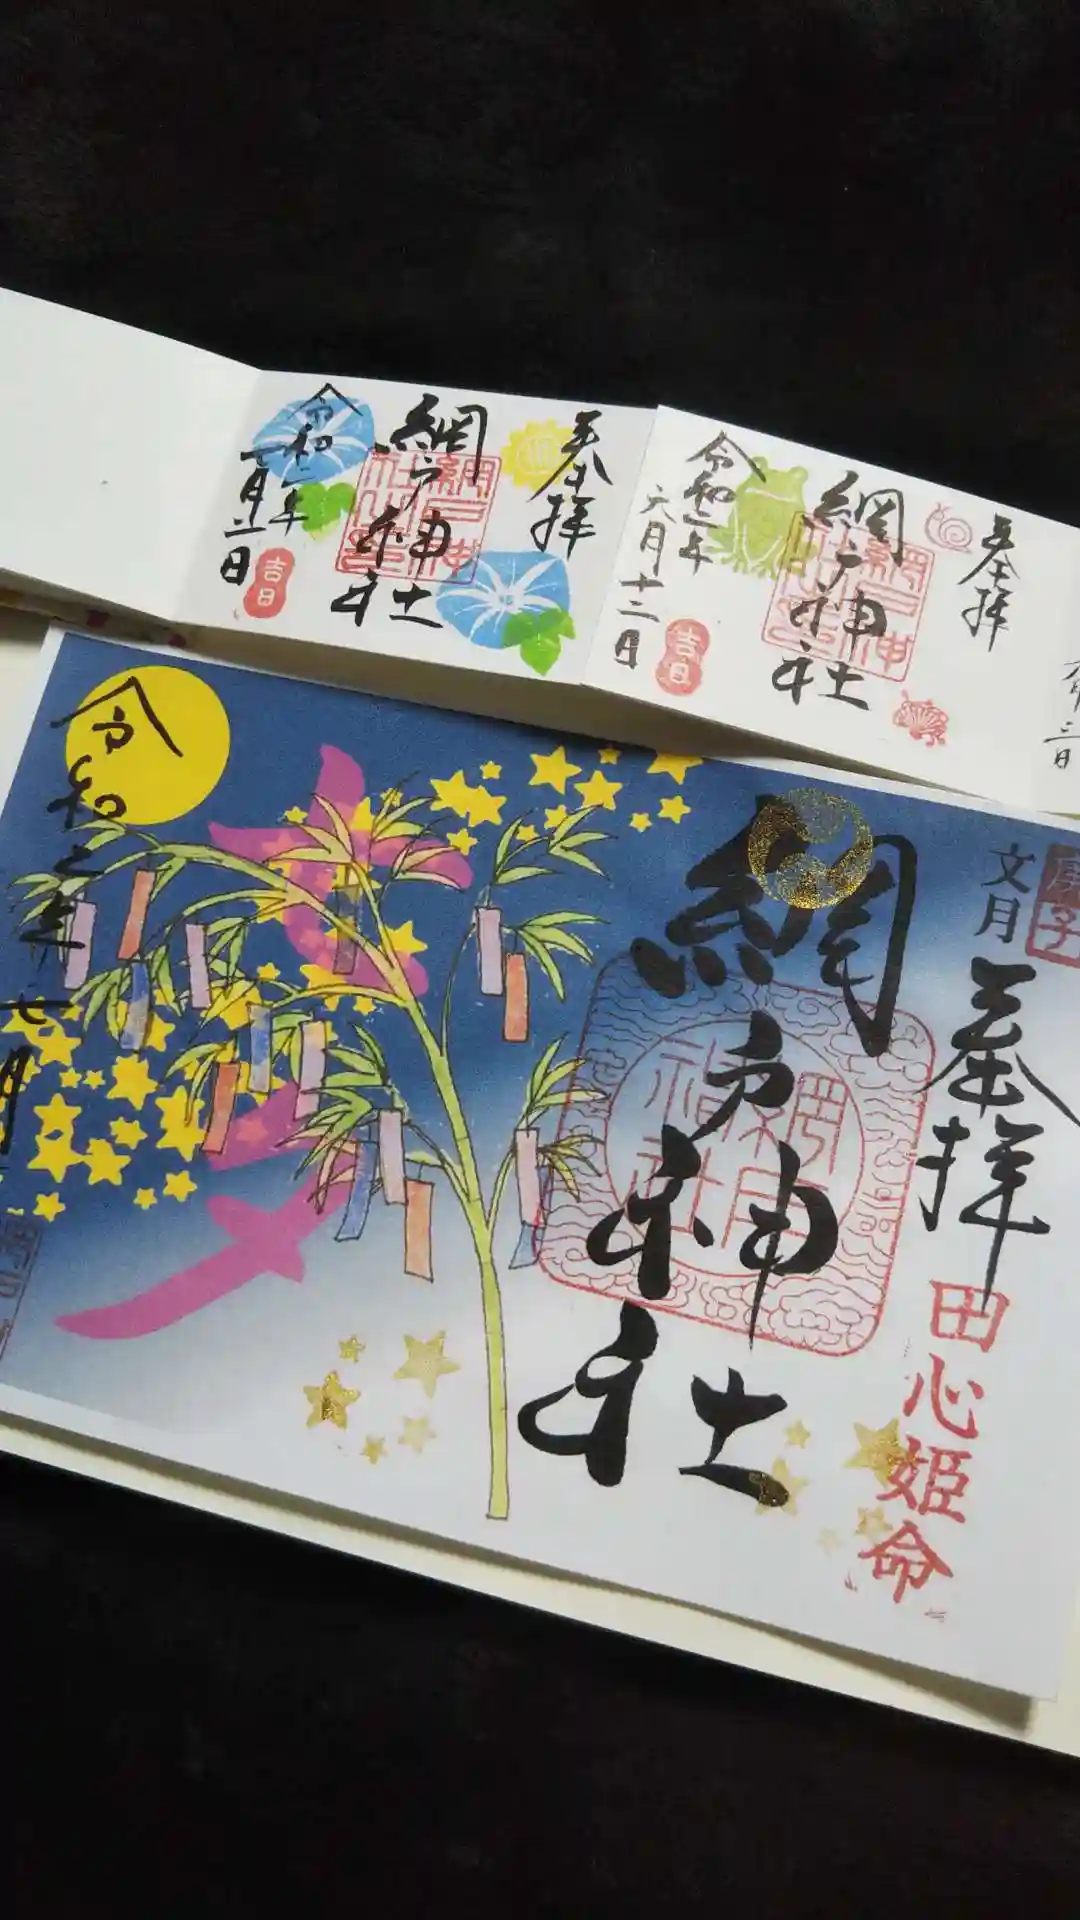 奉拝
網戸神社
網戸神社之印
令和二年
六月十二日
吉日
奉拝
網戸神社
網戸神社之印
令和二年
七月二日
吉日
庚子
文月
奉拝
田心姫命
網戸神社
網戸神社
七夕
令和二年七月